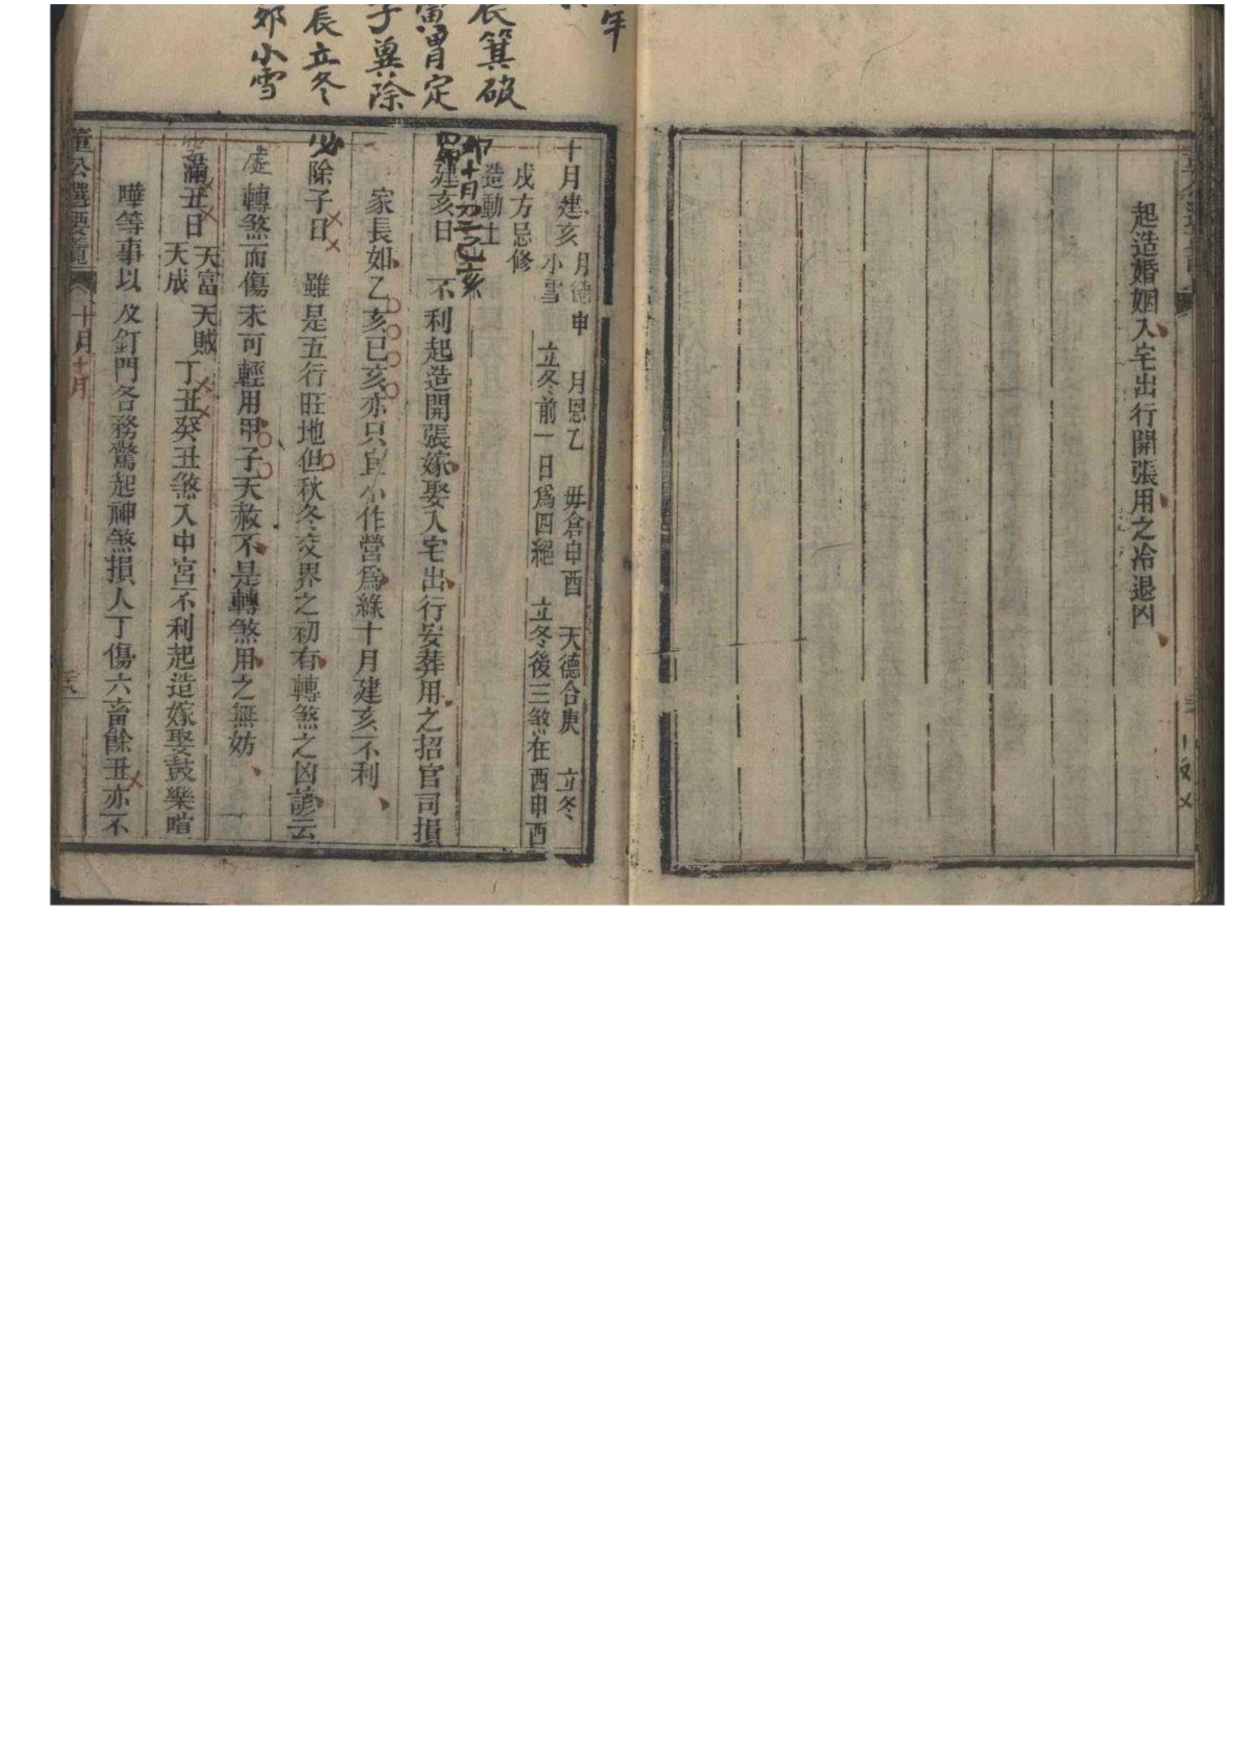 年
辰箕破
富胃定
子翼除
辰立冬
邜小雪
起造婚姻入宅出行開張用之冷退凶
十月建亥 月德甲 月恩乙 毋倉申酉 天德合庚 立冬
小雪 立冬前一日爲四絕 立冬後三煞在酉申酉
戌方忌修
造動土
十月
建亥日 不利起造開張嫁娶入宅出行安葬用之招官司損
家長如乙亥己亥亦只宜小作營爲緣十月建亥不利
除子日 雖是五行旺地但秋冬交界之初有轉煞之凶諺云
處
轉煞而傷未可輕用甲子天赦不是轉煞用之無妨
滿丑日 天富 天成 天賊 丁丑癸丑煞入中宮不利起造嫁娶鼓樂喧
嘩等事以及釘門各務驚起神煞損人丁傷六畜餘丑亦不
董公選要覽 十月 十月